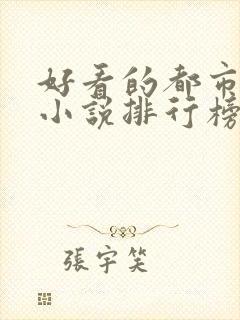 好看的都市
小說排行榜
張宇笑